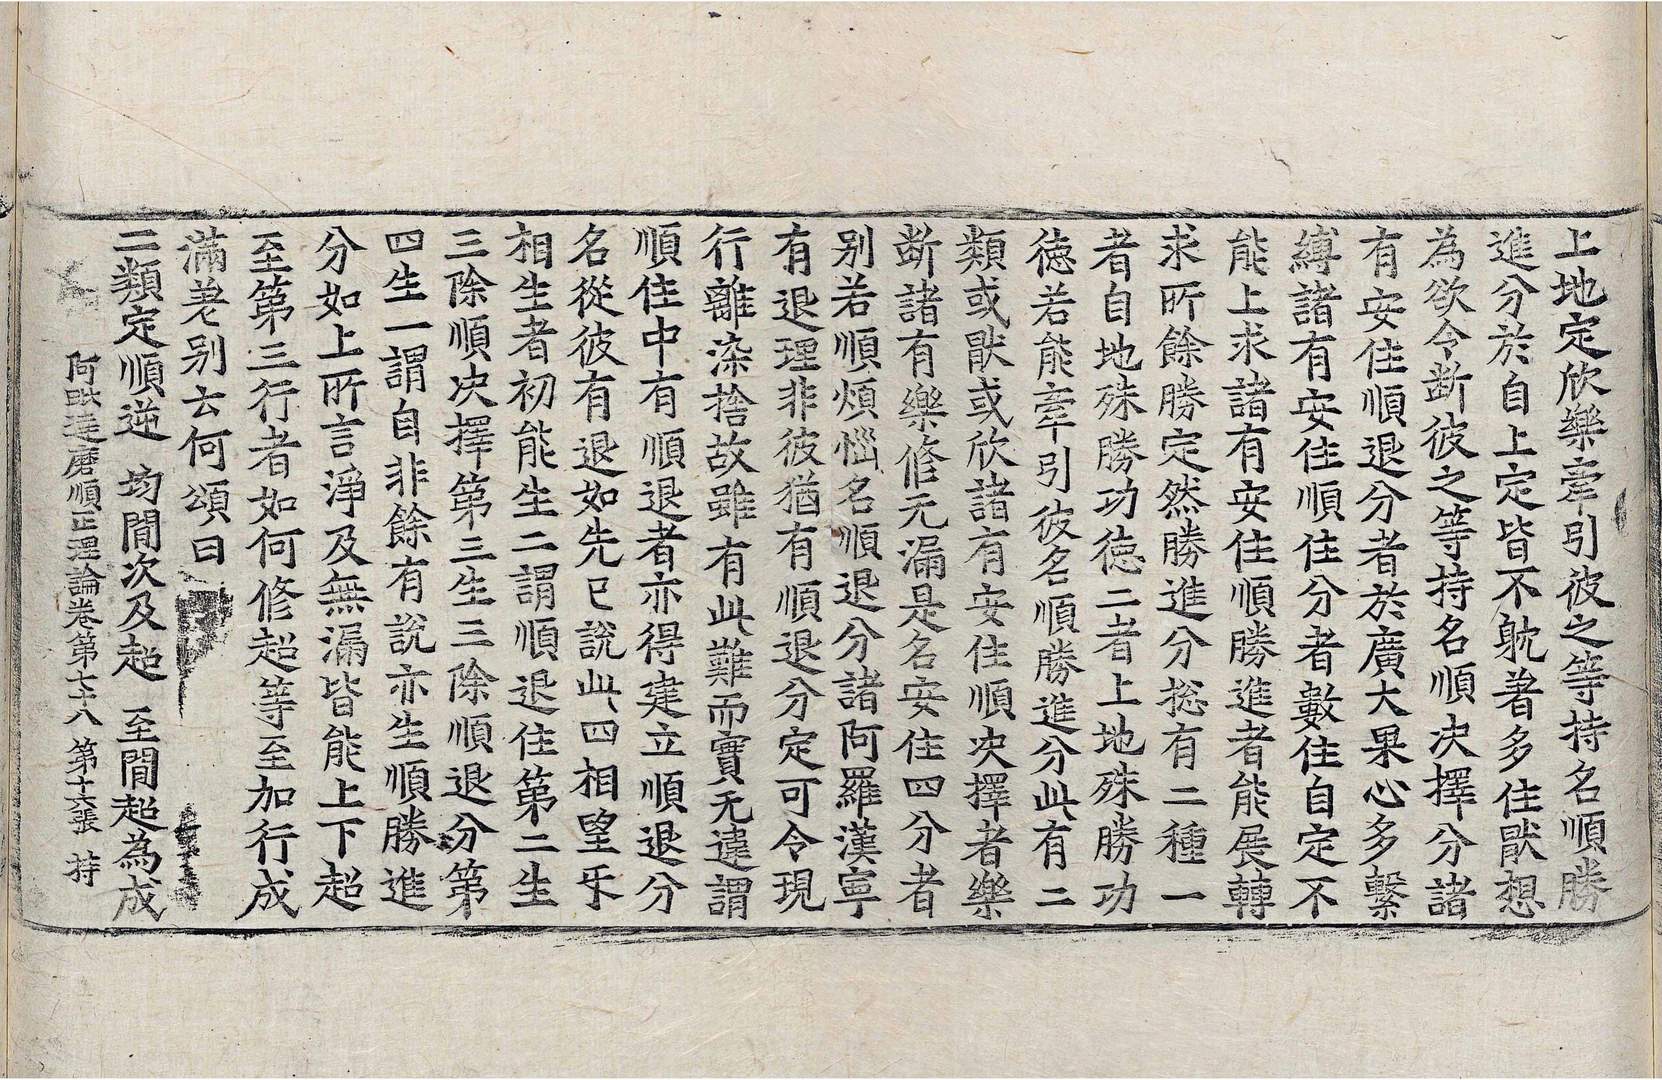 上地定欣樂牽引彼之等持名順勝
進分於自上定皆不躭著多住猒想
為欲令断彼之等持名順决擇分諸
有安住順退分者於廣大果心多繫
縛諸有安住順住分者數住自定不
能上求諸有安住順勝進者能展轉
求所餘勝定然勝進分捴有二種一
者自地殊勝功徳二者上地殊勝功
徳若能牽引彼名順勝進分此有二
類或猒或欣諸有安住順决擇者樂
断諸有樂修无漏是名安住四分者
别若順煩惱名順退分諸阿羅漢寧
有退理非彼猶有順退分定可令現
行離染捨故雖有此難而實无違謂
順住中有順退者亦得建立順退分
名從彼有退如先已說此四相望乐
相生者初能生二謂順退住第二生
三除順决擇第三生三除順退分第
四生一謂自非餘有說亦生順勝進
分如上所言淨及無漏皆能上下超
至第三行者如何修超等至加行成
滿差别云何頌曰
二類定順逆 均間次及超 至間超為成
阿毗達磨順正理論卷第七十八 第十六張 持